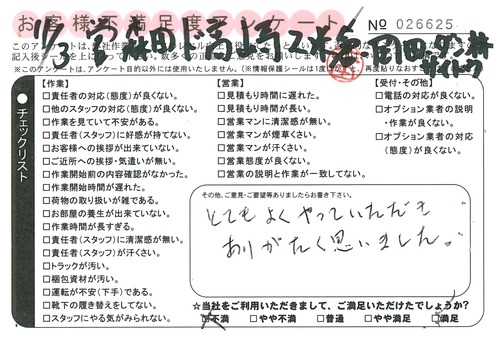 お客様不満足度アンケート
No 026625
【作業】
□責任者の対応(態度)が良くない。
□他のスタッフの対応(態度)が良くない。
□作業を見ていて不安がある。
□責任者(スタッフ)に好感が持てない。
□お客様への挨拶が出来ていない。
□ご近所への挨拶・気遣いが無い。
□作業開始前の内容確認がなかった。
□作業開始時間が遅れた。
□荷物の取り扱いが雑である。
□お部屋の養生が出来ていない。
□作業時間が長すぎる。
□責任者(スタッフ)に清潔感が無い。
□責任者(スタッフ)が汗くさい。
□トラックが汚い。
□梱包資材が汚い。
□運転が不安(下手)である。
□靴下の履き替えをしてない。
□スタッフにやる気がみられない。
チェックリスト
【営業】
□見積もり時間に遅れた。
□見積もり時間が長い。
□営業マンに清潔感が無い。
□営業マンが煙草くさい。
□営業マンが汗くさい。
□営業態度が良くない。
□営業の説明と作業が一致してない。
【受付・その他】
□電話の対応が良くない。
□オプション業者の説明
・作業が良くない。
□オプション業者の対応
(態度)が良くない。
その他、ご意見・ご要望等ありましたらお書き下さい。
とてもよくやっていただき
ありがたく思いました。
☆当社をご利用いただきまして、ご満足いただけたでしょうか?
□不満 □やや不満 □普通 □やや満足 □満足